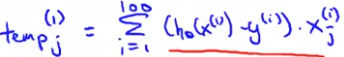 temp_j^{(1)} = \sum_{i=1}^{100} (h_θ(x^{(i)}) - y^{(i)}) \cdot x_j^{(i)}